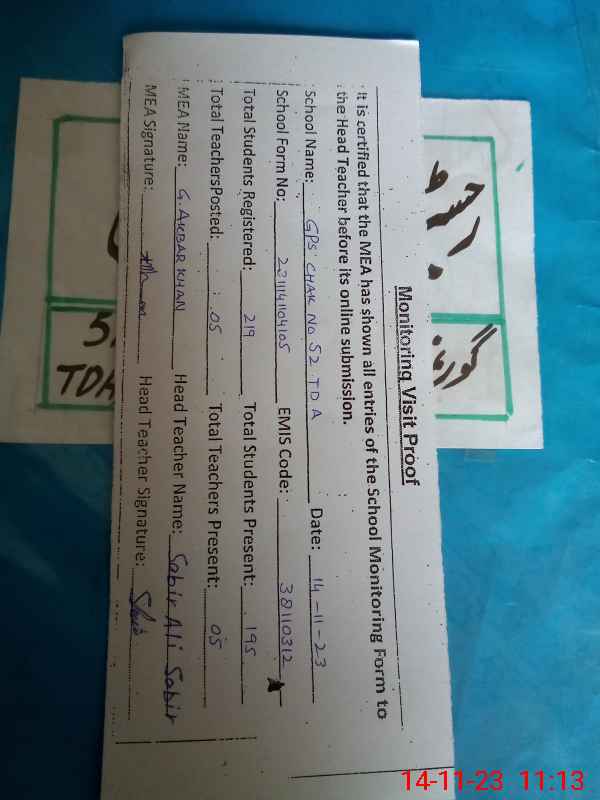 Monitoring Visit Proof
It is certified that the MEA has shown all entries of the School Monitoring Form to
the Head Teacher before its online submission.
School Name: GPS CHAK No 52 TDA Date: 14-11-23
School Form No: 231141104105 EMIS Code: 38110312
Total Students Registered: 219 Total Students Present: 195
Total TeachersPosted: 05 Total Teachers Present: 05
MEA Name: G. AKBAR KHAN Head Teacher Name: Sabir Ali Sabir
MEA Signature: Head Teacher Signature:
TDA
14-11-23 11:13